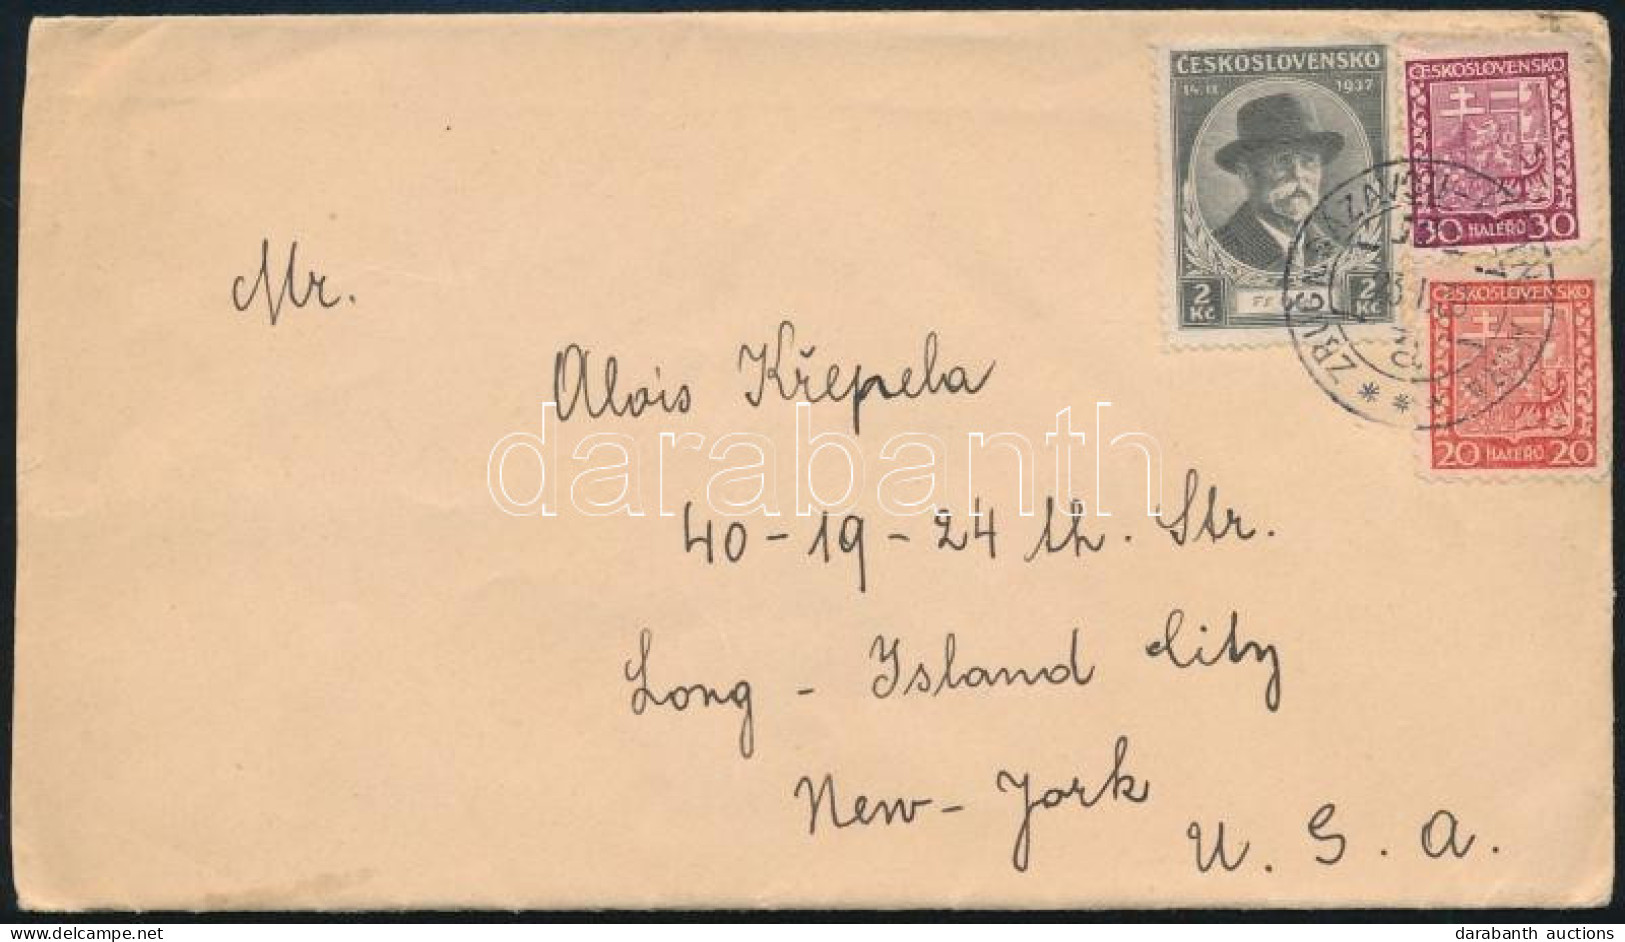 ČESKOSLOVENSKO
14. IX 1937
2 Kč 2 Kč
ČESKOSLOVENSKO
30 HALÉŘŮ 30
ČESKOSLOVENSKO
20 HALÉŘŮ 20
ZBUČ SÁZAVOU
Mr.
Alois Křepela
40-19-24 th. Str.
Long - Island City
New-York
U. S. A.
darabanth
darabanth auctions